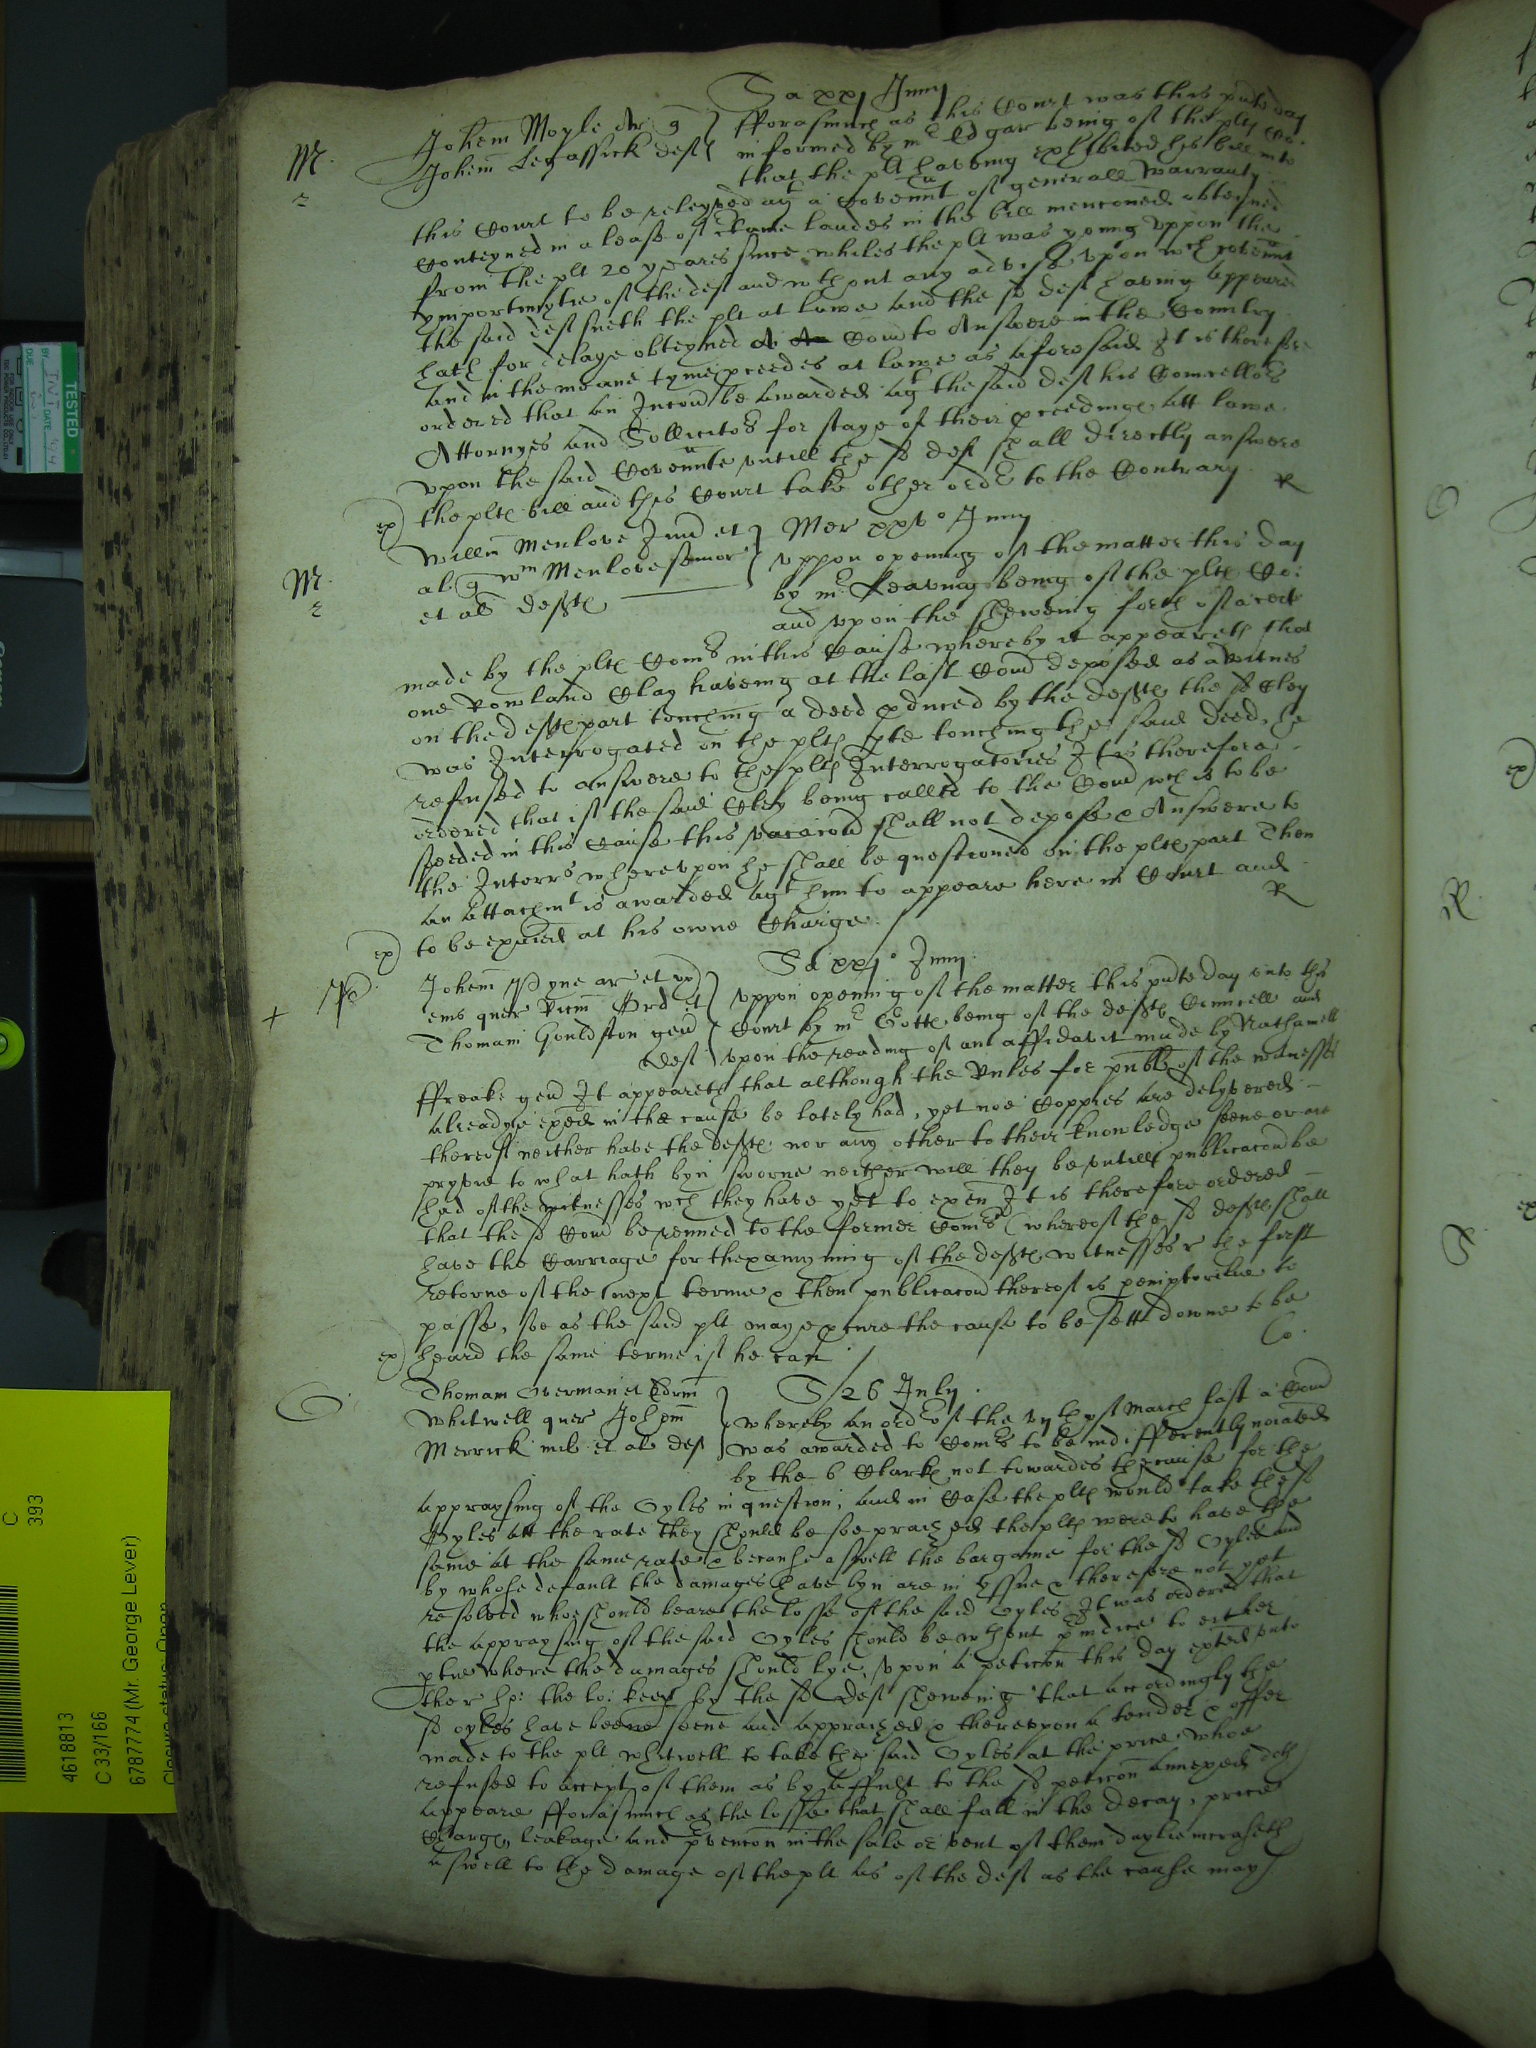 Sa xxj Junij
M.
Johem Moyle Ar q
Johem Legassick deft
fforasmuch as this Court was this pnte day
informed by mr Edgar being of the plts Co:
that the plt having exhibited his bill into
this Court to be releyved agt a Covennt of generall warranty
Conteyned in a lease of certaine landes in the bill menconed obteyned
from the plt 20 yeares since whiles the plt was yonng uppon the
ymportunytie of the deft and wthout any advise upon wch covennt
the said deft sueth the plt at lawe and the sd deft having Appeared
hath for delaye obteyned A Comn to Answere in the Countrey
And in the meane tyme pceedes at lawe as aforesaid It is therefore
ordered that An Inionc be Awarded agt the said deft his Councellors
Attornyes and Sollicitors for staye of their pceedinge Att lawe
upon the said Covennte untill the sd deft shall directly answere
the plts bill and this Court take other order to the Contrary
ex
R
M.
Willm Menlove Jun et
al q Wm Menlove senior
et al defts
Mer xxvo Junij
uppon openinge of the matter this day
by mr Keavinge being of the plts Co:
and upon the shewinge forth of a cert
made by the plts Comrs in this Cause whereby it appeareth that
one Rowland Clay haveing at the last Comn deposed as a witnes
on the defts part touching a deed pduced by the defts the sd Cley
was Interrogated on the plts pte touching the said deed, he
refused to answere to the plts Interrogatories It is therefore
ordered that if the said Cley being called to the Comn wch is to be
speeded in this Cause this vacacon shall not depose & Answere to
the Interrs whereupon he shall be questioned on the plts part Then
an Attachmt is awarded agt him to appeare here in Court and
to be exaied at his owne Charge.
ex
R
Sa xxjo Junij
+
Johem Pyne ar et
quer Ard et
Thomam Gouldston gen
deft
uppon opening of the matter this pnte day unto this
Court by mr Cotte being of the defts Councell and
upon the reading of an affidavit made by Nathaniell
ffreake gen It appeareth that although the Rules for publc of the witnesses
Alreadye exed in the cause be lately had, yet noe Coppies are delyvered
thereof neither have the defts nor any other to their knowledge seene or are
pryvie to what hath byn sworne neither will they be untill publicacon be
had of the witnesses wch they have yet to exen It is therefore ordered
that the sd Comn be renued to the former Comrs (whereof the sd defts shall
have the Carriage for thexamynning of the defts witnesses & the first
retorne of the next terme & then publicacon thereof is pemptorilie to
passe, soe as the said plt may pcure the cause to be sett downe to be
heard the same terme if he can
ex
Co.
Thomam Overman et Edrm
Whitwell quer Johem
Merrick mil et al def
S/26 July
whereby an order of the vijth of March last a Comn
was awarded to Comrs to be indifferently noiated
by the 6 Clarks not towardes the cause for the
appraysing of the Oyles in question, and in Case the plts would take those
Oyles att the rate they should be soe praised the plts were to have the
same at the same rate & because aswell the bargaine for the sd Oyles and
by whose default the damages have byn are in yssue & therefore not yet
resolved whoe should beare the losse of the said Oyles It was ordered that
the appraysing of the said Oyles should be wthout preiudice to either
ptie where the damages should lye, Upon a peticon this day exhted unto
the r ho: the lo: keep by the sd deft shewing that accordingly the
sd oyles have beene seene and appraised & thereupon a tender & offer
made to the plt Whitwell to take the said Oyles at the price whoe
refused to accept of them as by affidt to the sd peticon annexed doth
appeare fforasmuch as the losse that shall fall in the decay, price
Charge, leakage and pvencon in the sale or vent of them daylie increaseth
aswell to the damage of the plt as of the deft as the cause may
TESTED
C
393
4618813
C 33/166
6787774 (Mr. George Lever)
Closure status: Open